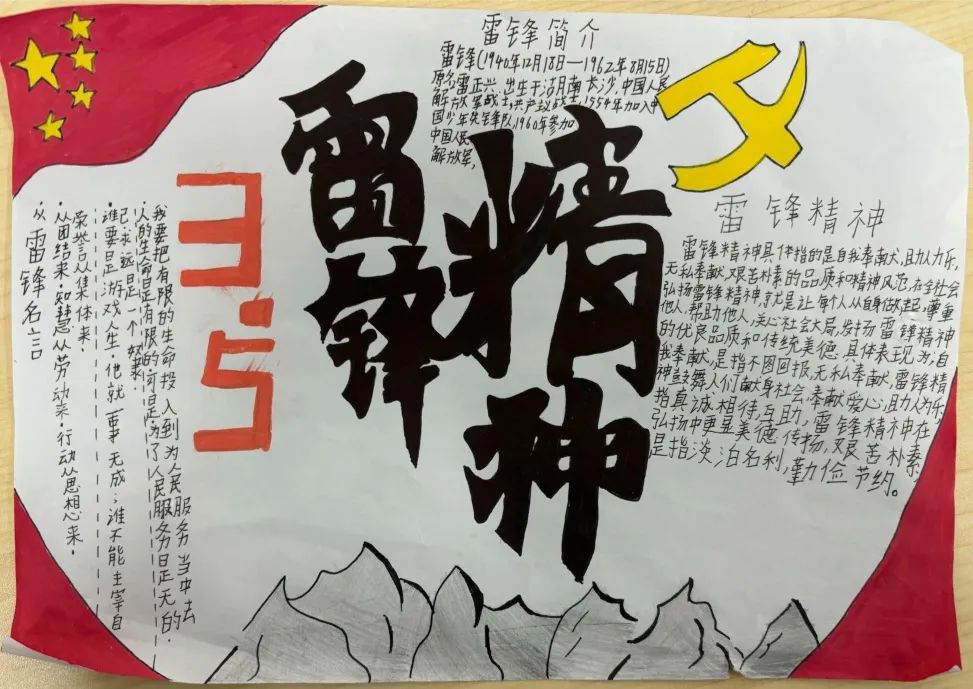 雷锋简介
雷锋(1940年12月18日—1962年8月15日)
原名雷正兴,出生于湖南长沙,中国人民
解放军战士,共产主义战士,1954年加入中
国少年先锋队,1960年参加
中国人民
解放军,
雷锋
精神
3.5
雷锋精神
雷锋精神具体指的是自我奉献,助人为乐,
无私奉献,艰苦朴素的品质和精神风范,在全社会
弘扬雷锋精神,就是让每个人从自身做起,尊重
他人,帮助他人,关心社会大局,发扬雷锋精神
的优良品质和传统美德,具体表现为:自
我奉献,是指不图回报,无私奉献,雷锋精
神鼓舞人们献身社会,奉献爱心,助人为乐
指真诚相待,互助,雷锋精神在
弘扬中更显美德传扬,艰苦朴素,
是指淡泊名利,勤俭节约。
我要把有限的生命投入到为人民服务当中去
人的生命是有限的,可是为了人民服务是无的.
己.永远是一个奴隶.
谁要是游戏人生.他就一事无成;谁不能主宰自
荣誉从集体来.
从团结来.知慧从劳动来.行动从思想来.
从
雷锋名言